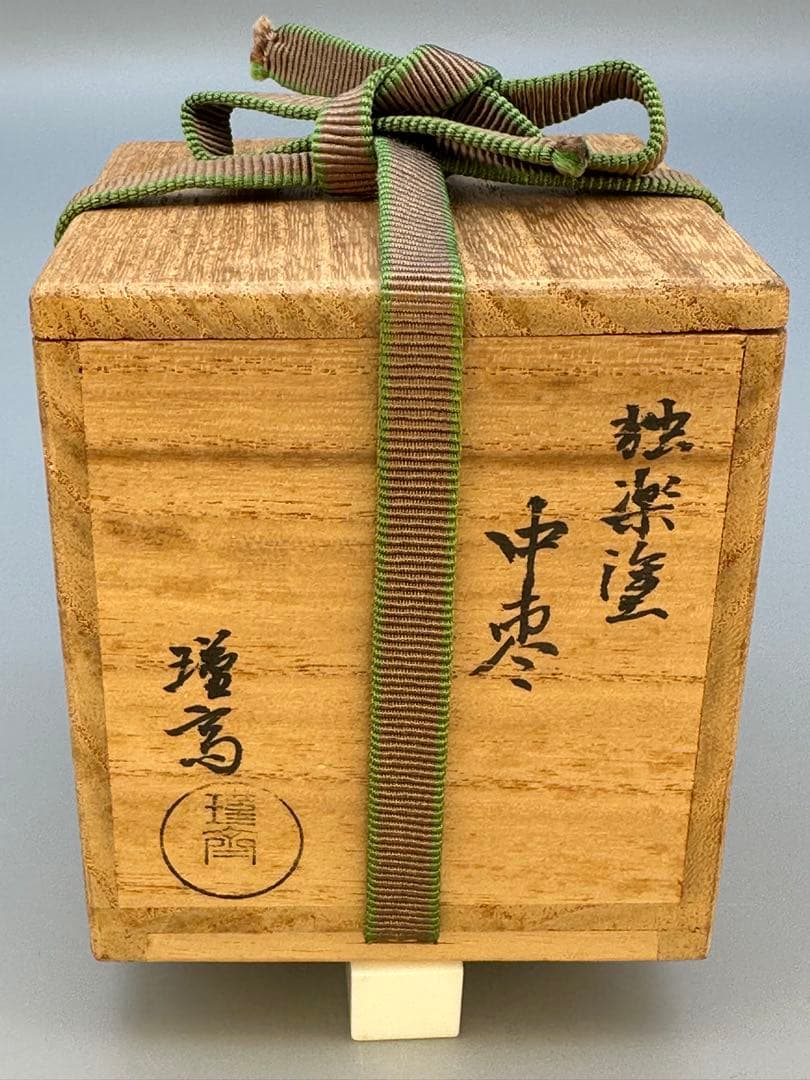 独楽塗
中棗
瑾斎
瑾斎